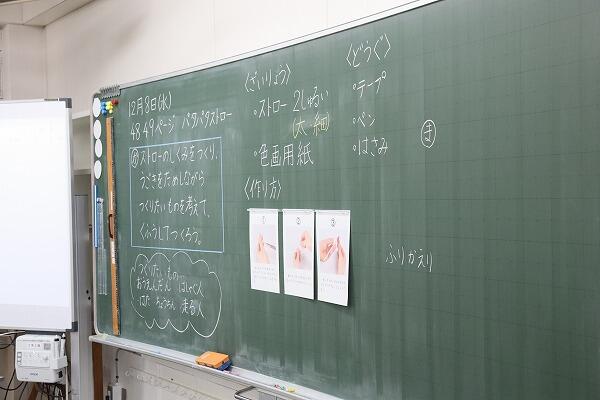 12月8日(水)
48 49ページ パタパタストロー
め ストローのしくみをつくり、
うごきをためしながら
つくりたいものを考えて、
くふうしてつくろう。
つくりたいもの
おうえんだん はしゃぐ人
はた ちょうちん 走る人
〈ざいりょう〉
◦ストロー 2しゅるい
(太・細)
◦色画用紙
〈作り方〉
①
②
③
〈どうぐ〉
◦テープ
◦ペン
◦はさみ
ま
ふりかえり